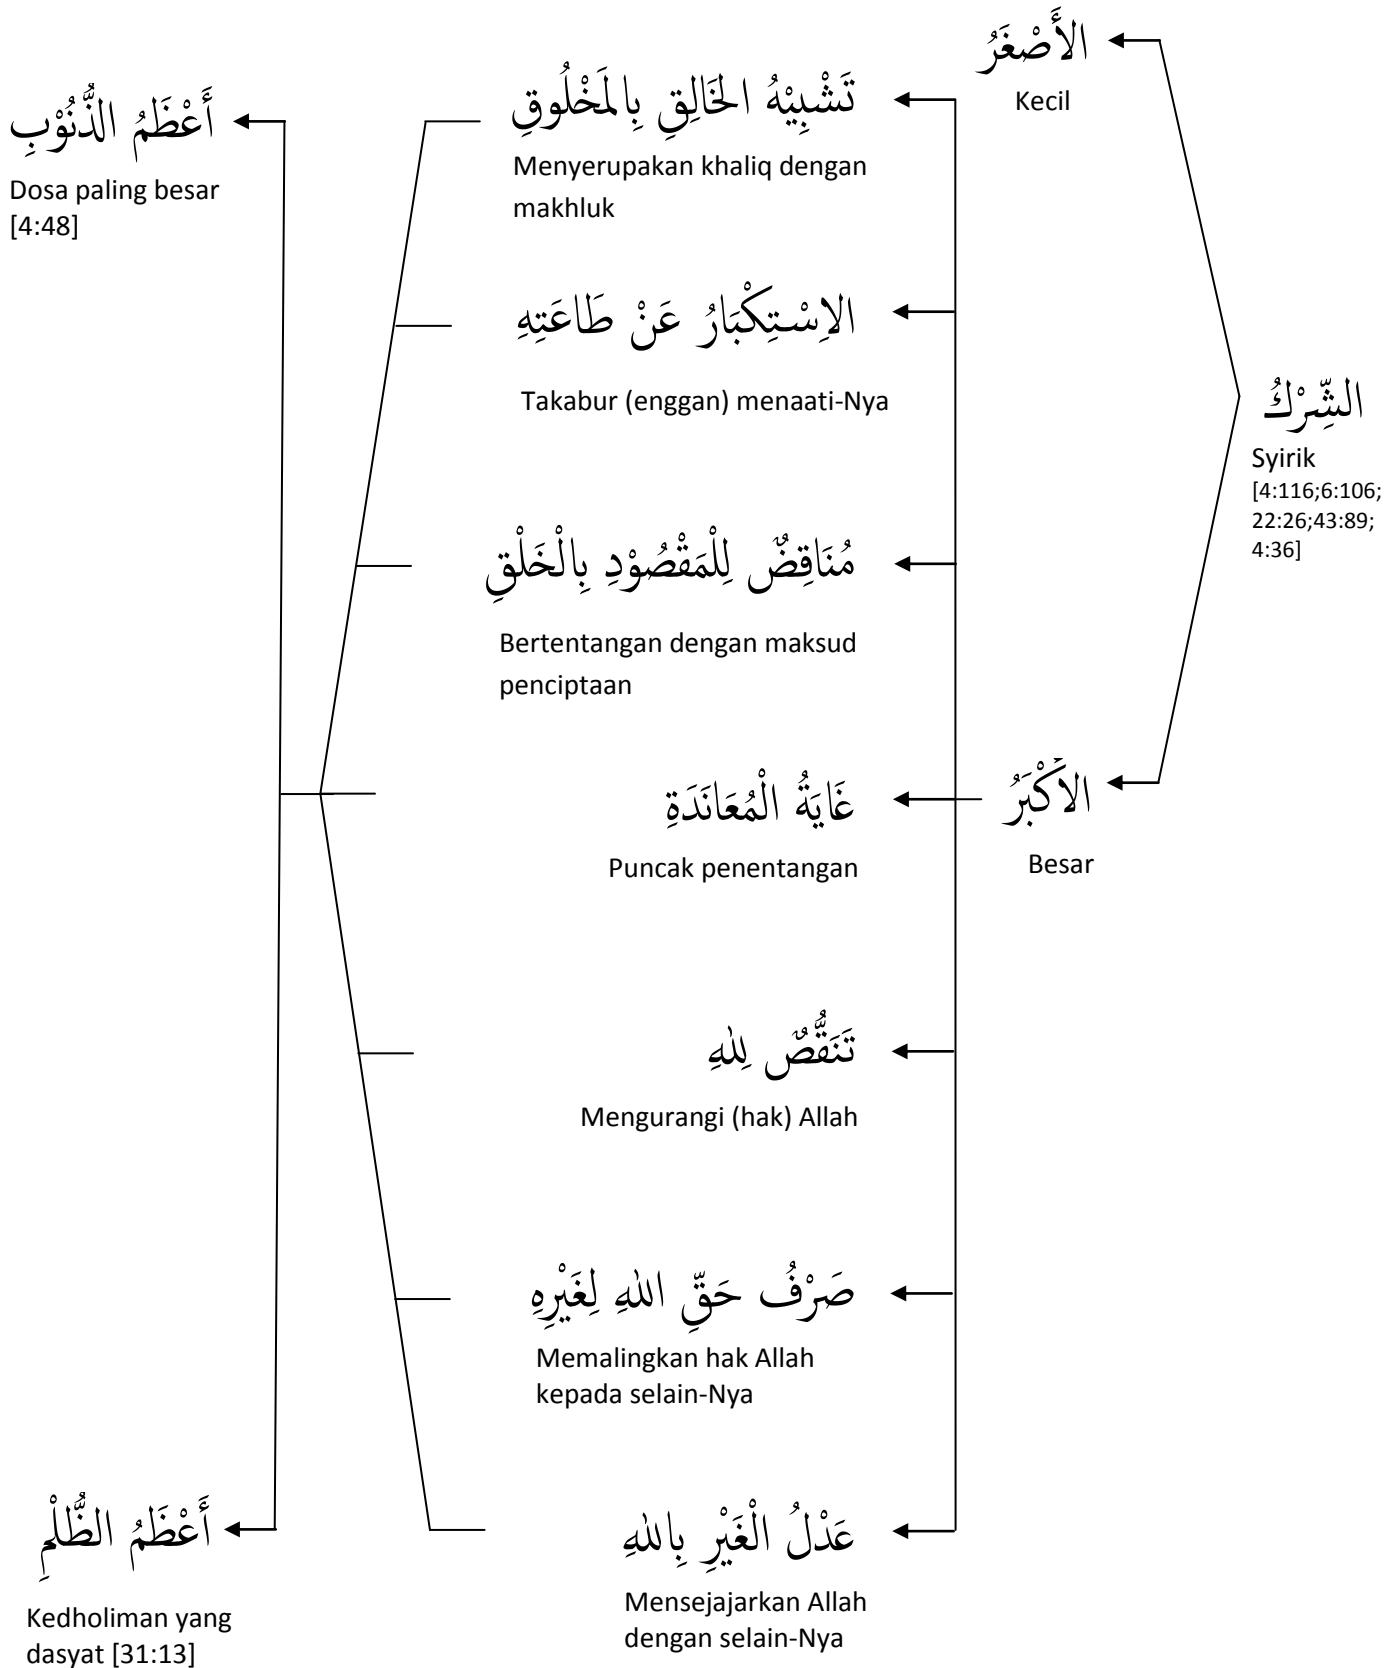 الشِّرْكُ
Syirik
[4:116;6:106;
22:26;43:89;
4:36]
الأَصْغَرُ
Kecil
الأَكْبَرُ
Besar
تَشْبِيْهُ الخَالِقِ بِالمَخْلُوقِ
Menyerupakan khaliq dengan
makhluk
الاِسْتِكْبَارُ عَنْ طَاعَتِهِ
Takabur (enggan) menaati-Nya
مُنَاقِضٌ لِلْمَقْصُوْدِ بِالْخَلْقِ
Bertentangan dengan maksud
penciptaan
غَايَةُ الْمُعَانَدَةِ
Puncak penentangan
تَنَقُّصٌ لِلهِ
Mengurangi (hak) Allah
صَرْفُ حَقِّ اللهِ لِغَيْرِهِ
Memalingkan hak Allah
kepada selain-Nya
عَدْلُ الْغَيْرِ بِاللهِ
Mensejajarkan Allah
dengan selain-Nya
أَعْظَمُ الذُّنُوْبِ
Dosa paling besar
[4:48]
أَعْظَمُ الظُّلْمِ
Kedholiman yang
dasyat [31:13]